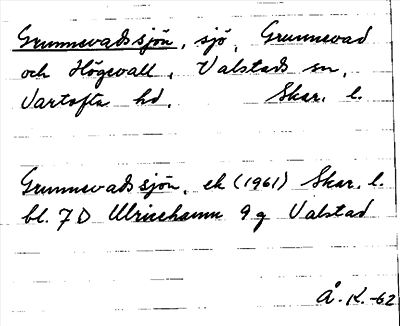 Grunnevadssjön, sjö, Grunnevad
och Högevall, Valstads sn,
Vartofta hd, Skar. l.
Grunnevadssjön, ek (1961) Skar. l.
bl. 7 D Ulricehamn 9 g Valstad
Å. K. -62